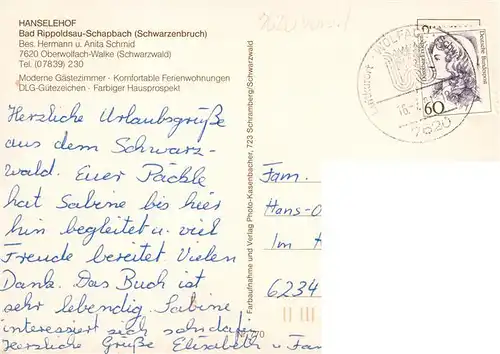 HANSELEHOF
Bad Rippoldsau-Schapbach (Schwarzenbruch)
Bes. Hermann u. Anita Schmid
7620 Oberwolfach-Walke (Schwarzwald)
Tel. (07839) 230
Moderne Gästezimmer · Komfortable Ferienwohnungen
DLG-Gütezeichen · Farbiger Hausprospekt
Herzliche Urlaubsgrüße
aus dem Schwarz-
wald. Euer Päckle
hat Sabine bis hier
hin begleitet u. viel
Freude bereitet Vielen
Dank. Das Buch ist
sehr lebendig. Sabine
interessiert sich sehr dafür
Herzliche Grüße Elisabeth u Fam
Farbaufnahme und Verlag Photo-Kasenbacher, 723 Schramberg/Schwarzwald
WOLFAC
Luftkurort
7620
Deutsche Bundespost
60
Fam.
Hans-
Im
6234